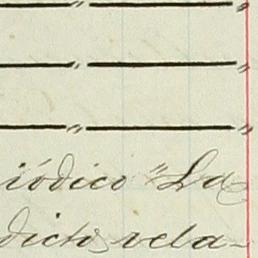 " "
" "
" "
iódico "La
dicto rela-